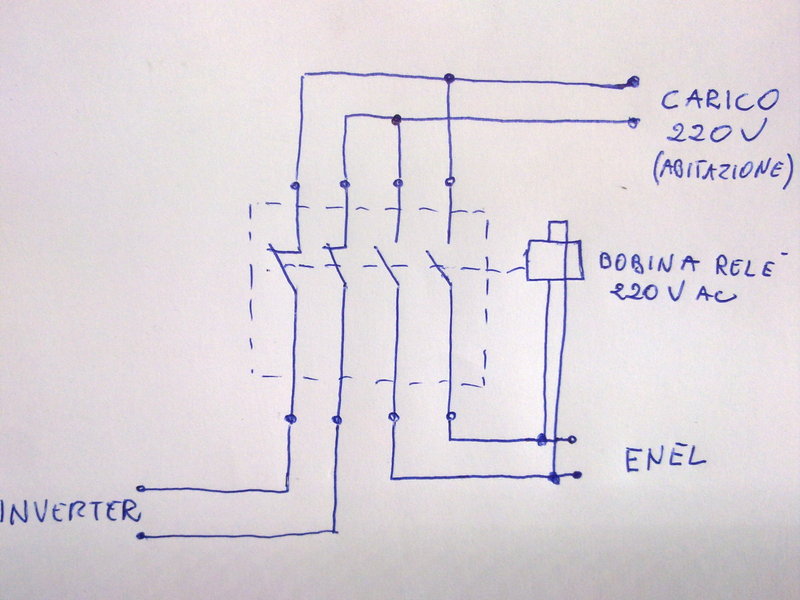 CARICO
220V
(ABITAZIONE)
BOBINA RELE'
220V AC
ENEL
INVERTER